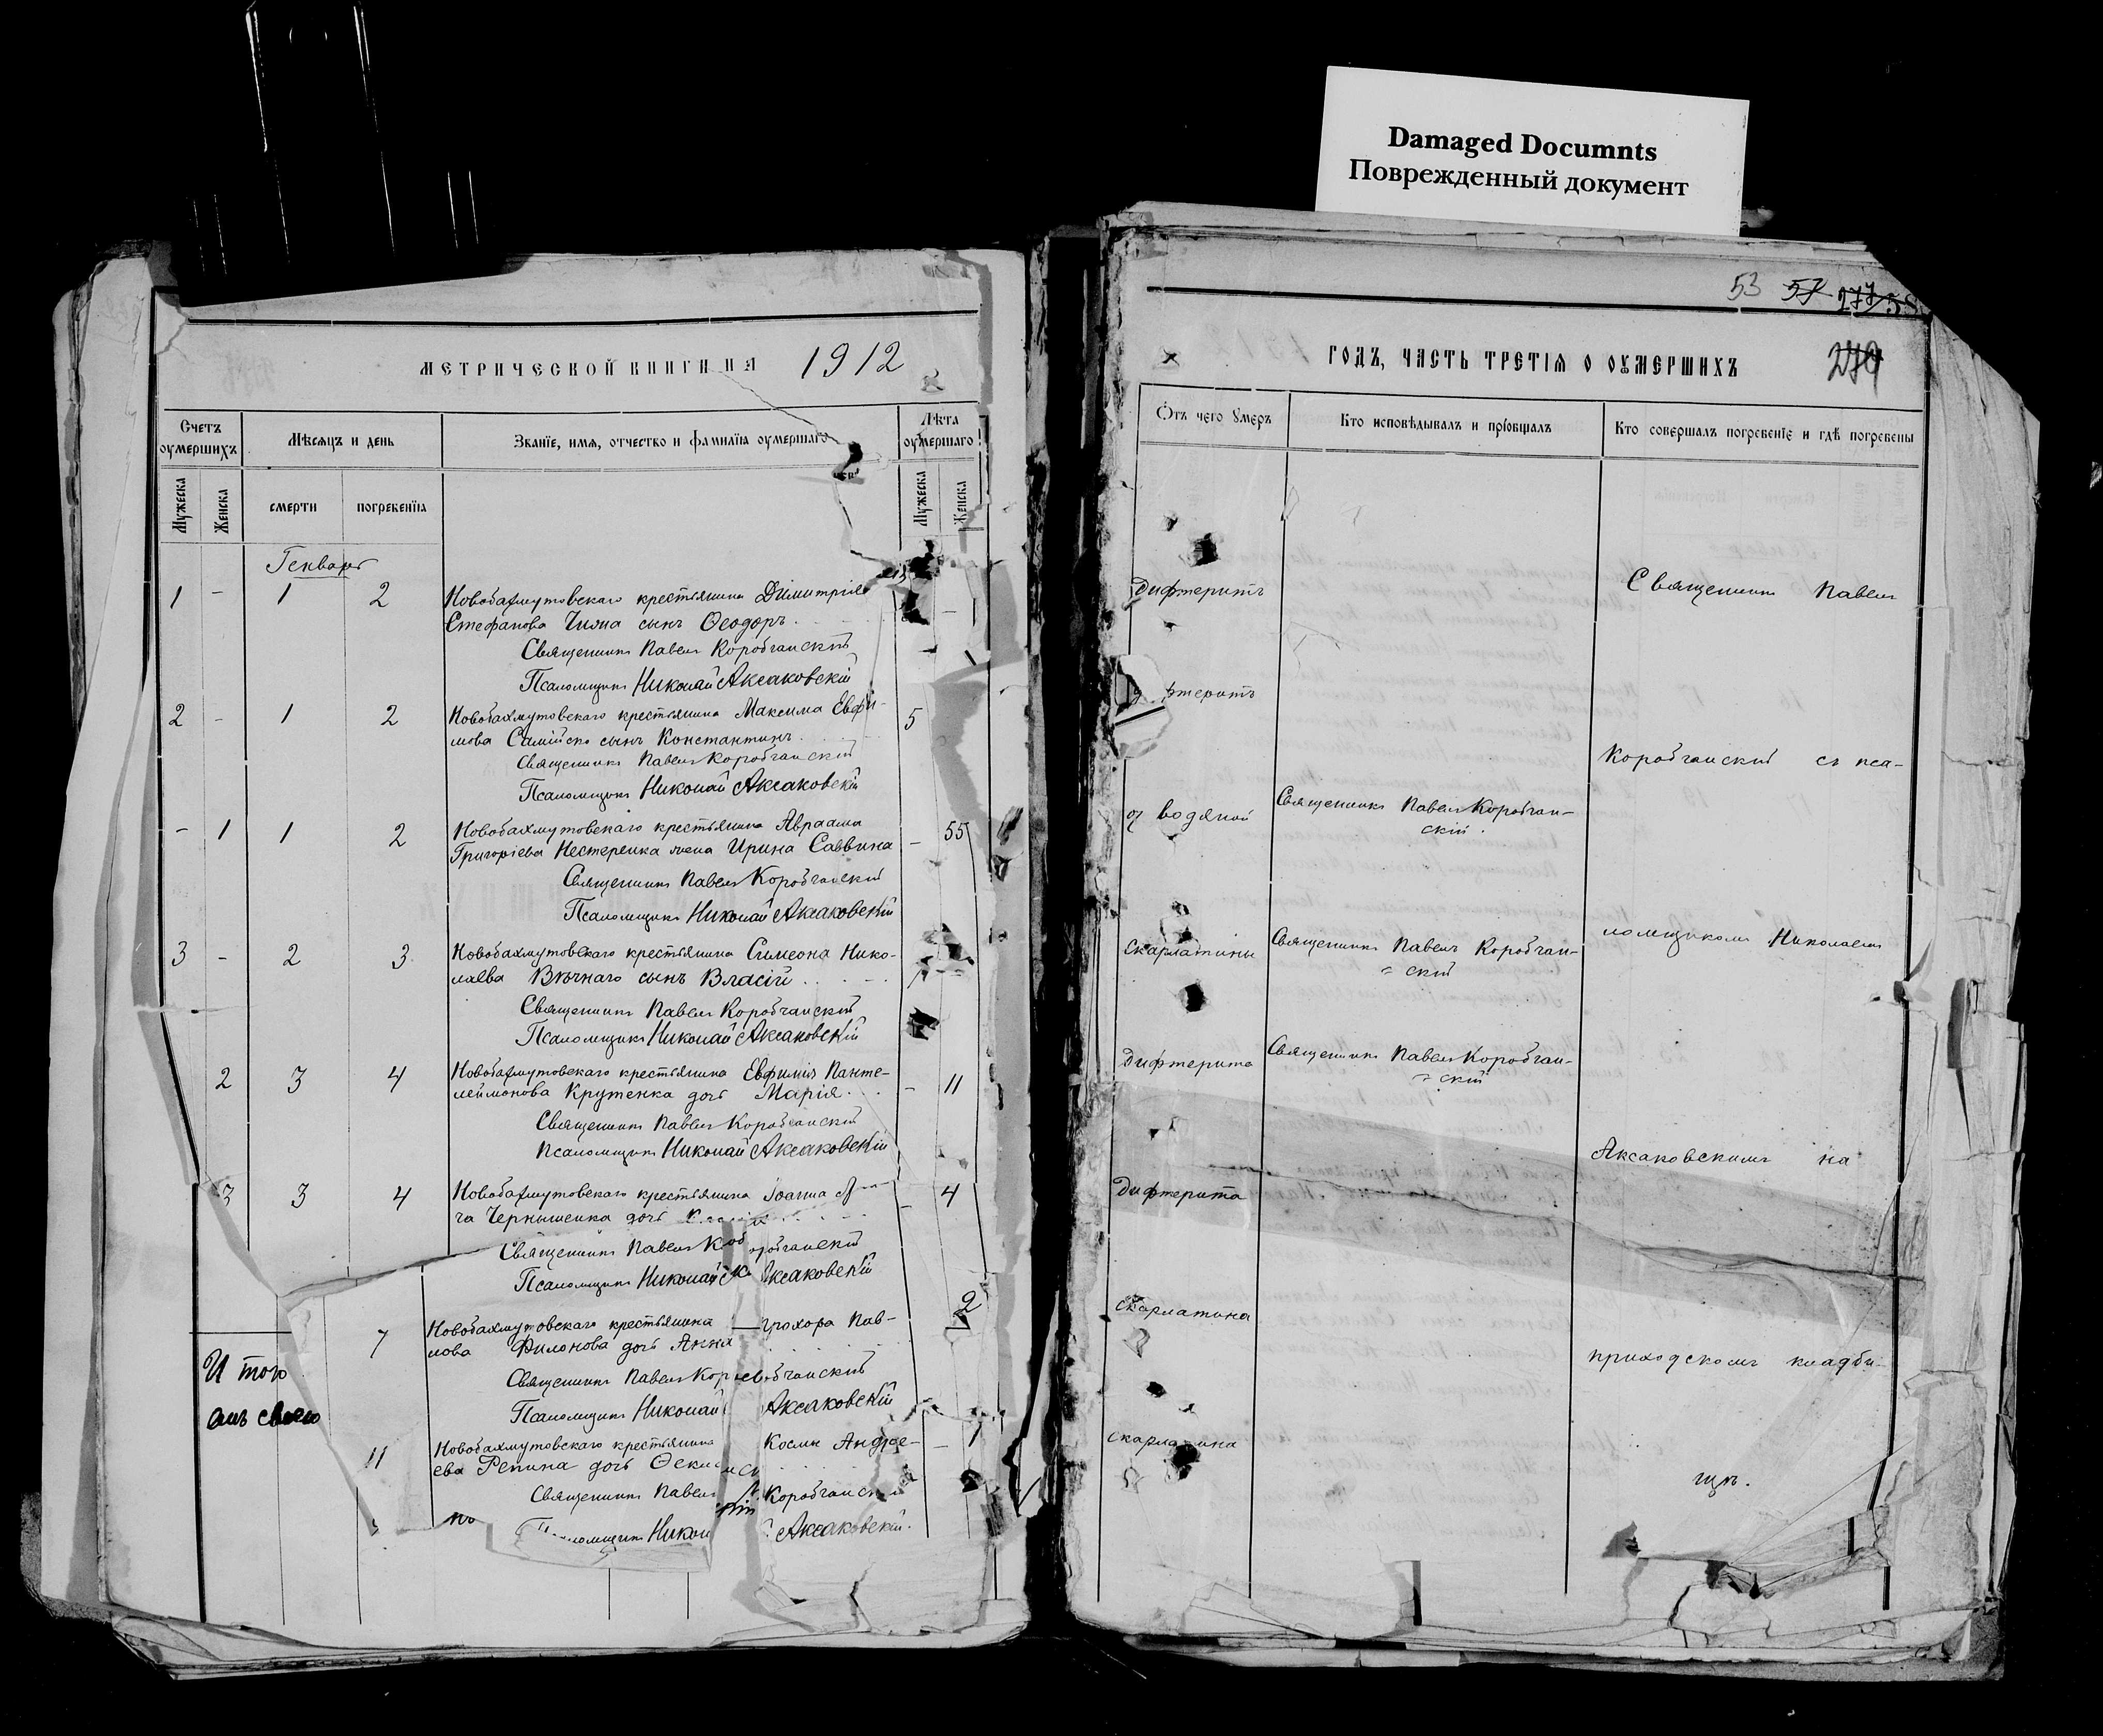 Damaged Documnts
Поврежденный документ
53 57 277 58
МЕТРИЧЕСКОЙ КНИГИ НА 1912
ГОДЪ, ЧАСТЬ ТРЕТІЯ О ОУМЕРШИХЪ
279
Счетъ оумершихъ
Мѣсяцъ и день
Званіе, имя, отчество и фамилія оумершаго
Лѣта оумершаго
Отъ чего умеръ
Кто исповѣдывалъ и пріобщалъ
Кто совершалъ погребеніе и гдѣ погребены
Мужеска
Женска
смерти
погребенія
Мужеска
Женска
Генварь
1 - 1 2 Новобахмутовскаго крестьянина Димитрія
Стефанова Чияна сынъ Ѳеодоръ.
Священникъ Павелъ Коробчанскій
Псаломщикъ Николай Аксаковскій
Дифтеритъ
Священникъ Павелъ
2 - 1 2 Новобахмутовскаго крестьянина Максима Евфи- 5
мова сынъ Константинъ.
Священникъ Павелъ Коробчанскій
Псаломщикъ Николай Аксаковскій
фтеритъ
Коробчанскій съ пса-
- 1 1 2 Новобахмутовскаго крестьянина Авраама - 55
Григоріева Нестеренка жена Ирина Саввина
Священникъ Павелъ Коробчанскій
Псаломщикъ Николай Аксаковскій
водяной
Священникъ Павелъ Коробчан-
скій.
3 - 2 3 Новобахмутовскаго крестьянина Симеона Нико-
лаева Вѣчнаго сынъ Власій
Священникъ Павелъ Коробчанскій
Псаломщикъ Николай Аксаковскій
скарлатины
Священникъ Павелъ Коробчан-
скій
ломщикомъ Николаемъ
2 3 4 Новобахмутовскаго крестьянина Евфимія Панте- - 11
леймонова Крутенка дочь Марія.
Священникъ Павелъ Коробчанскій
Псаломщикъ Николай Аксаковскій
Дифтерита
Священникъ Павелъ Коробчан-
скій
Аксаковскимъ на
3 3 4 Новобахмутовскаго крестьянина Іоанна - 4
Чернышенка дочь
Священникъ Павелъ Коробчанскій
Псаломщикъ Николай Аксаковскій
Дифтерита
7 Новобахмутовскаго крестьянина Прохора Пав- 2
лова Филонова дочь Анна
Священникъ Павелъ Коробчанскій
Псаломщикъ Николай Аксаковскій
скарлатина
приходскомъ кладби-
Итого
11 Новобахмутовскаго крестьянина Космы Андре- - 1
ева Репина дочь
Священникъ Павелъ Коробчанскій
Псаломщикъ Николай Аксаковскій.
скарлатина
щѣ.